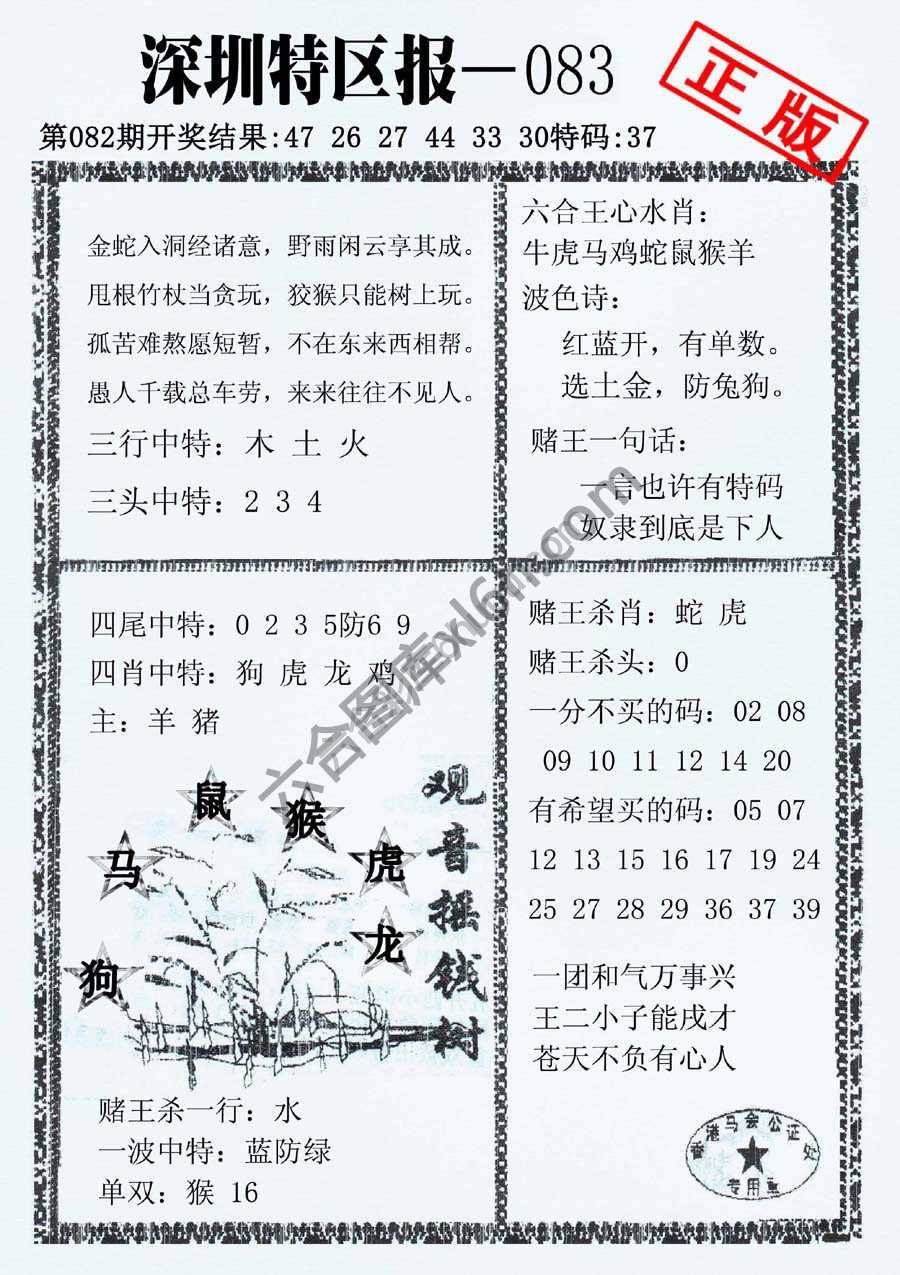 深圳特区报—083
正版
第082期开奖结果:47 26 27 44 33 30特码:37
金蛇入洞经诸意，野雨闲云享其成。
甩根竹杖当贪玩，狡猴只能树上玩。
孤苦难熬愿短暂，不在东来西相帮。
愚人千载总车劳，来来往往不见人。
三行中特：木 土 火
三头中特：2 3 4
六合王心水肖：
牛虎马鸡蛇鼠猴羊
波色诗：
红蓝开，有单数。
选土金，防兔狗。
赌王一句话：
一言也许有特码
奴隶到底是下人
四尾中特：0 2 3 5防6 9
四肖中特：狗 虎 龙 鸡
主：羊 猪
鼠
猴
马
虎
龙
狗
观音摇钱树
赌王杀一行：水
一波中特：蓝防绿
单双：猴 16
赌王杀肖：蛇 虎
赌王杀头：0
一分不买的码：02 08
09 10 11 12 14 20
有希望买的码：05 07
12 13 15 16 17 19 24
25 27 28 29 36 37 39
一团和气万事兴
王二小子能戌才
苍天不负有心人
香港马会公证处
专用章
六合图库xl6m.com